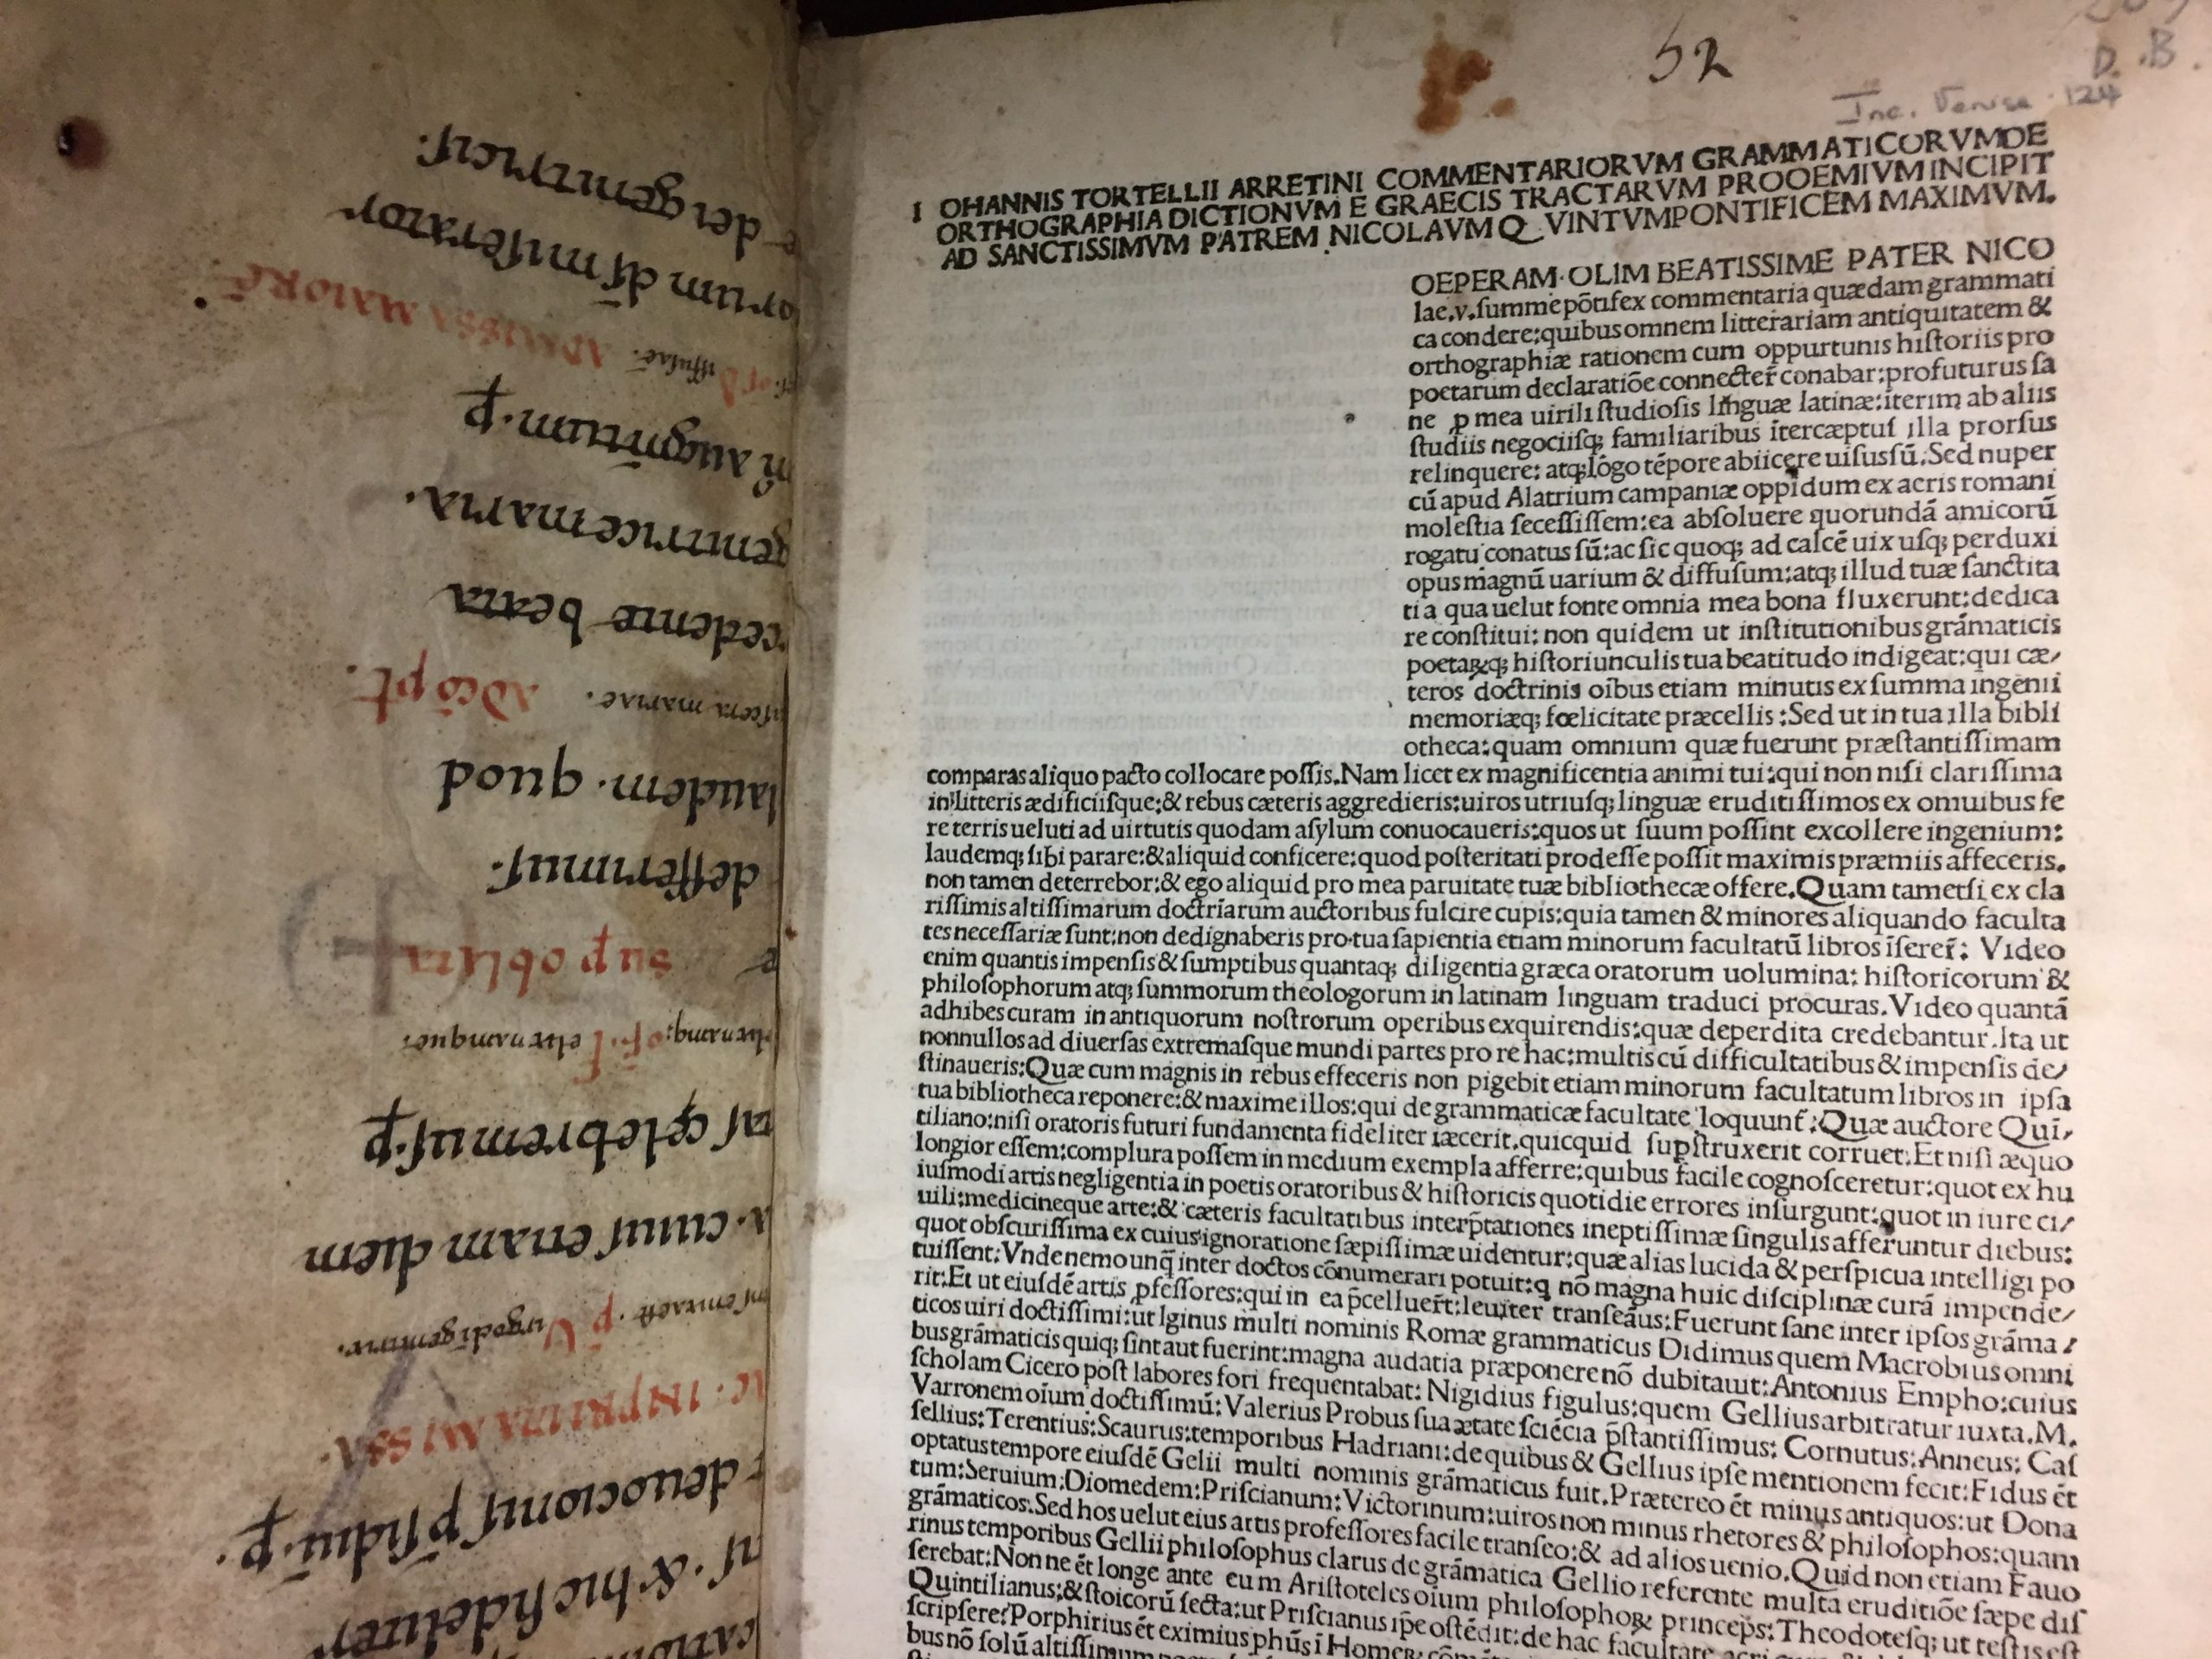 nſ. & hic fideliter
deuocioniſ p̄ſidiū. ꝑ.
IN PRIMA MISSA.
ꝑ Virgo dī genitrix.
x. cuiuſ etiam diem
taſ cęlebremuſ. ꝑ
of. F
ſup oblata
defferimuſ.
laudem. quod
mariae. ADCŌ PL.
cedente beata
genitrice maria.
augm̄tum. ꝑ
AD MISSA MAIORĒ
orum dſ miſerator
dei genitriciſ.
52
D. B.
Inc. Venise . 124
I OHANNIS TORTELLII ARRETINI COMMENTARIORVM GRAMMATICORVMDE
ORTHOGRAPHIA DICTIONVM E GRAECIS TRACTARVM PROOEMIVM INCIPIT
AD SANCTISSIMVM PATREM NICOLAVM QVINTVMPONTIFICEM MAXIMVM.
OEPERAM·OLIM BEATISSIME PATER NICO
lae.v.ſumme põtifex commentaria quædam grammati
ca condere:quibus omnem litterariam antiquitatem &
orthographiæ rationem cum oppurtunis hiſtoriis pro
poetarum declaratiõe connecter̃ conabar:profuturus ſa
ne ꝓ mea uirili ſtudioſis linguæ latinæ:iterim ab aliis
ſtudiis negociiſqꝫ familiaribus ītercæptuſ illa prorſus
relinquere: atqꝫ lõgo tẽpore abiicere uiſus ſũ. Sed nuper
cũ apud Alatrium campaniæ oppidum ex aeris romani
moleſtia ſeceſſiſſem:ea abſoluere quorundã amicorũ
rogatu conatus ſũ:ac ſic quoqꝫ ad calcẽ uix uſqꝫ perduxi
opus magnũ uarium & diffuſum:atqꝫ illud tuæ ſanctita
ti a qua uelut fonte omnia mea bona fluxerunt:dedica
re conſtitui: non quidem ut inſtitutionibus grãmaticis
poetaꝝqꝫ hiſtoriunculis tua beatitudo indigeat:qui cæ/
teros doctrinis oĩbus etiam minutis ex ſumma ingenii
memoriæqꝫ fœlicitate præcellis:Sed ut in tua illa bibli
otheca:quam omnium quæ fuerunt præſtantiſſimam
comparas aliquo pacto collocare poſſis.Nam licet ex magnificentia animi tui:qui non niſi clariſſima
in litteris ædificiiſque:& rebus cæteris aggredieris:uiros utriuſqꝫ linguæ eruditiſſimos ex omuibus fe
re terris ueluti ad uirtutis quodam aſylum conuocaueris:quos ut ſuum poſſint excollere ingenium:
laudemqꝫ ſibi parare:& aliquid conficere:quod poſteritati prodeſſe poſſit maximis præmiis affeceris.
non tamen deterrebor:& ego aliquid pro mea paruitate tuæ bibliothecæ offere.Quam tametſi ex cla
riſſimis altiſſimarum doctrĩarum auctoribus fulcire cupis:quia tamen & minores aliquando faculta
tes neceſſariæ ſunt:non dedignaberis pro·tua ſapientia etiam minorum facultatũ libros ĩſerer̃: Video
enim quantis impenſis & ſumptibus quantaqꝫ diligentia græca oratorum uolumina: hiſtoricorum &
philoſophorum atqꝫ ſummorum theologorum in latinam linguam traduci procuras.Video quantã
adhibes curam in antiquorum noſtrorum operibus exquirendis:quæ deperdita credebantur.Ita ut
nonnullos ad diuerſas extremaſque mundi partes pro re hac:multis cũ difficultatibus & impenſis de/
ſtinaueris:Quæ cum magnis in rebus effeceris non pigebit etiam minorum facultatum libros in ipſa
tua bibliotheca reponere:& maxime illos:qui de grammaticæ facultate loquunt̃:Quæ auctore Qui/
tiliano:niſi oratoris futuri fundamenta fideliter iæcerit.quicquid ſupſtruxerit corruet.Et niſi æquo
longior eſſem:complura poſſem in medium exempla afferre:quibus facile cognoſceretur:quot ex hu
iuſmodi artis negligentia in poetis oratoribus & hiſtoricis quotidie errores inſurgunt:quot in iure ci/
uili:medicineque arte:& cæteris facultatibus interp̄tationes ineptiſſimæ ſingulis afferuntur diebus:
quot obſcuriſſima ex cuius ignoratione ſæpiſſimæ uidentur:quæ alias lucida & perſpicua intelligi po
tuiſſent:Vnde nemo unq̃ inter doctos cõnumerari potuit:q nõ magna huic diſciplinæ curã impende/
rit:Et ut eiuſdẽ artis ꝓfeſſores:qui in ea p̄celluer̃t:leuiter tranſeãus:Fuerunt ſane inter ipſos grãma/
ticos uiri doctiſſimi:ut Iginus multi nominis Romæ grammaticus Didimus quem Macrobius omni
bus grãmaticis quiqꝫ ſint aut fuerint:magna audatia præponere nõ dubitauit:Antonius Empho:cuius
ſcholam Cicero poſt labores fori frequentabat: Nigidius figulus:quem Gellius arbitratur iuxta.M.
Varronem oĩum doctiſſimũ:Valerius Probus ſua ætate ſciẽcia p̄ſtantiſſimus: Cornutus:Anneus: Caſ
ſellius:Terentius:Scaurus:temporibus Hadriani:de quibus & Gellius ipſe mentionem fecit:Fidus ẽt
optatus tempore eiuſdẽ Gelii multi nominis grãmaticus fuit.Prætereo ẽt minus antiquos:ut Dona
tum:Seruium:Diomedem:Priſcianum:Victorinum:uiros non minus rhetores & philoſophos:quam
grãmaticos.Sed hos uelut eius artis profeſſores facile tranſeo:& ad alios uenio.Quid non etiam Fauo
rinus temporibus Gellii philoſophus clarus de grãmatica Gellio referente multa eruditiõe ſæpe diſ
ſerebat:Non ne ẽt longe ante eum Ariſtoteles oĩum philoſophoꝝ princeps:Theodoteſqꝫ ut teſtis eſt
Quintilianus:& ſtoicorũ ſecta:ut Priſcianus ip̄e oſtẽdit:de hac facultate
ſcripſere?Porphirius ẽt eximius phũs ĩ
bus nõ ſolũ altiſſimum